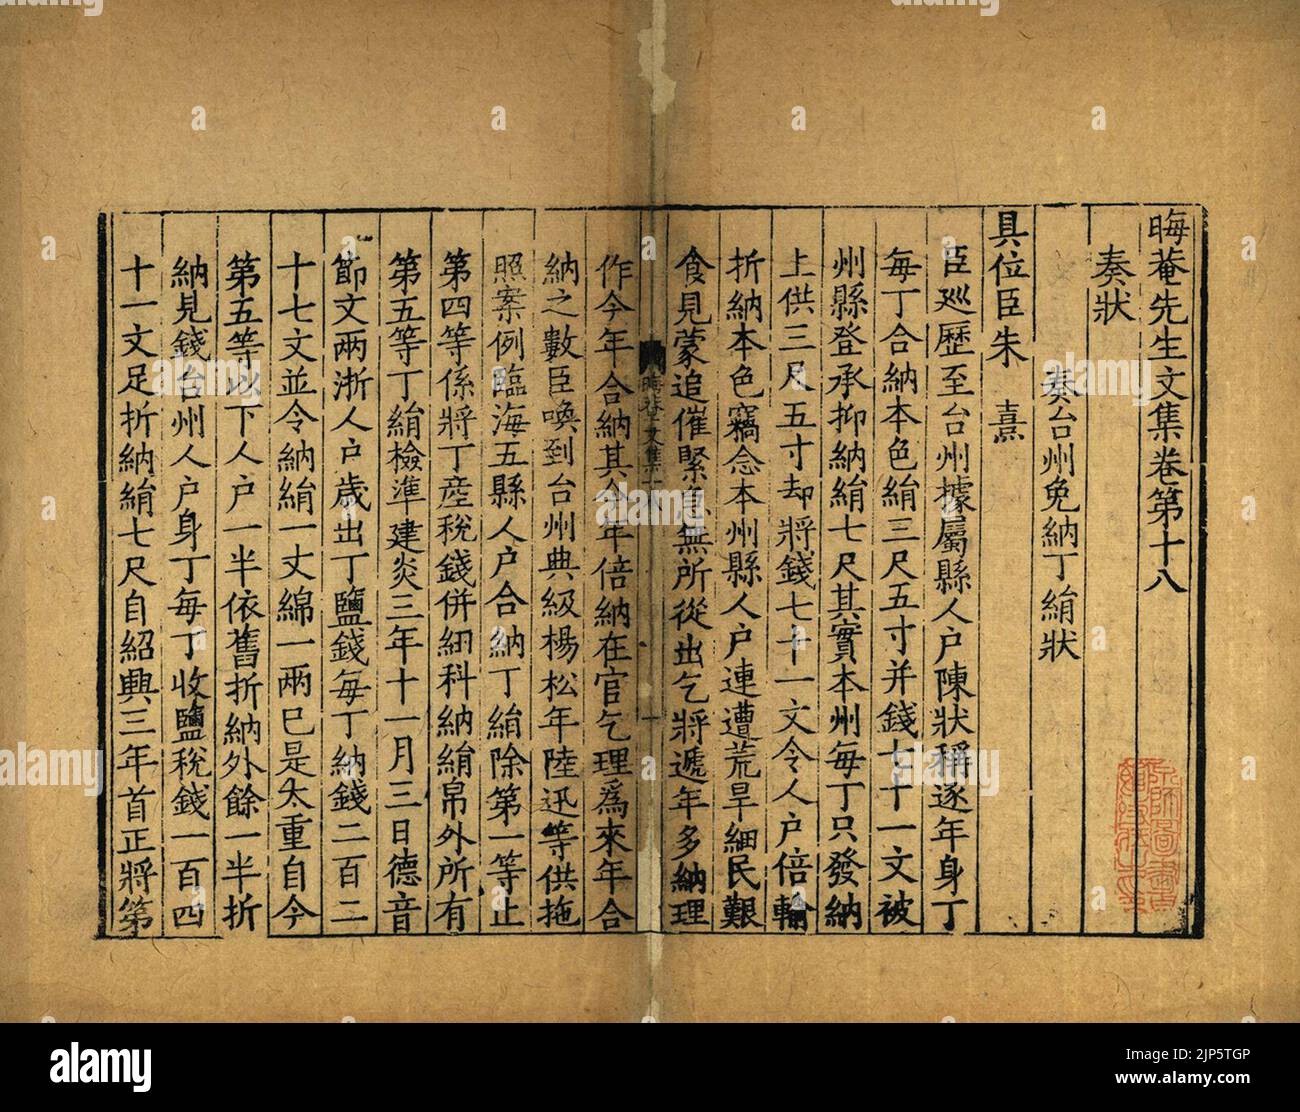 晦菴先生文集卷第十八
奏狀
奏台州免納丁絹狀
具位臣朱　熹
臣巡歷至台州據屬縣人户陳狀稱逐年身丁
每丁合納本色絹三尺五寸并錢七十一文被
州縣登承抑納絹七尺其實本州每丁只發納
上供三尺五寸却將錢七十一文令人户倍輸
折納本色竊念本州縣人户連遭荒旱細民艱
食見蒙追催緊急無所從出乞將遞年多納理
晦菴文集十八
一
作今年合納其今年倍納在官乞理爲來年合
納之數臣喚到台州典級楊松年陸迅等供拖
照案例臨海五縣人户合納丁絹除第一等止
第四等係將丁産稅錢併紐科納絹帛外所有
第五等丁絹檢準建炎三年十一月三日德音
節文兩浙人户歲出丁鹽錢每丁納錢二百二
十七文並令納絹一丈綿一兩已是太重自今
第五等以下人户一半依舊折納外餘一半折
納見錢台州人户身丁每丁收鹽稅錢一百四
十一文足折納絹七尺自紹興三年首正將第
alamy
Image ID: 2JP5TGP
www.alamy.com